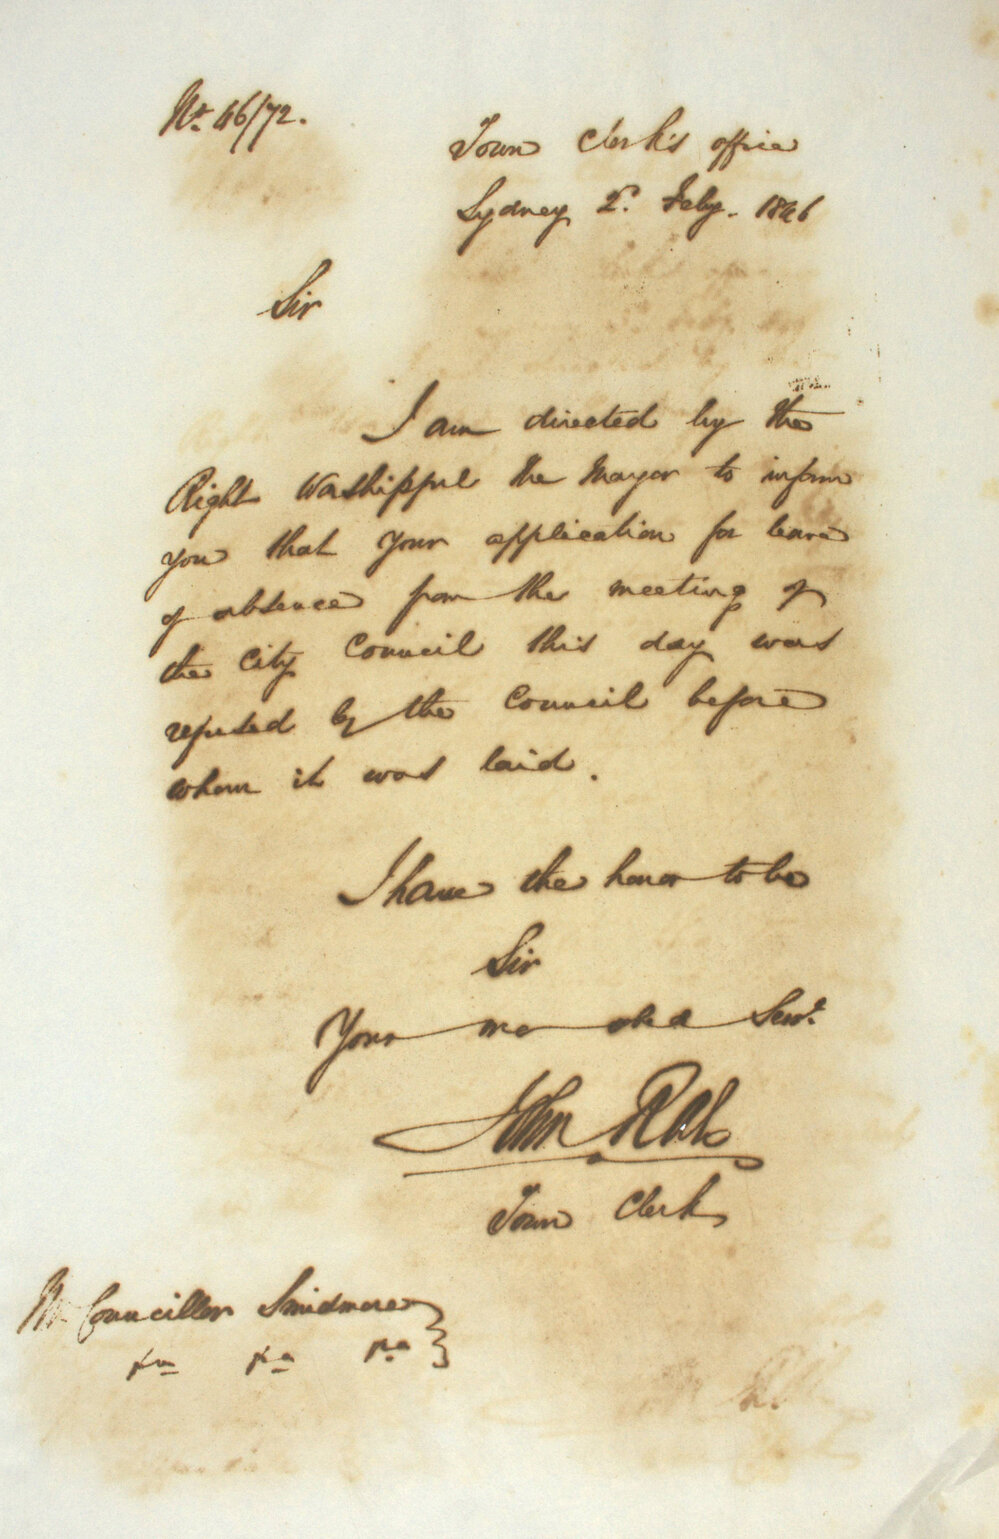 No. 46/72.
Town Clerk's office
Sydney 2d. Feby. 1846
Sir
I am directed by the
Right Worshipful the Mayor to inform
you that your application for leave
of absence from the meeting of
the City Council this day was
refused by the Council before
whom it was laid.
I have the honor to be
Sir
Your mo obed Servt.
John Rae
Town Clerk
Mr Councillor Smidmore